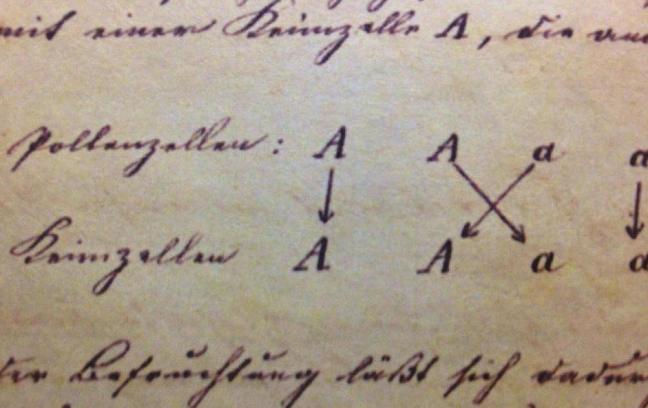 mit einer Keimzelle A, die au
Pollenzellen: A A a a
Keimzellen A A a a
der Befruchtung läßt sich dadur